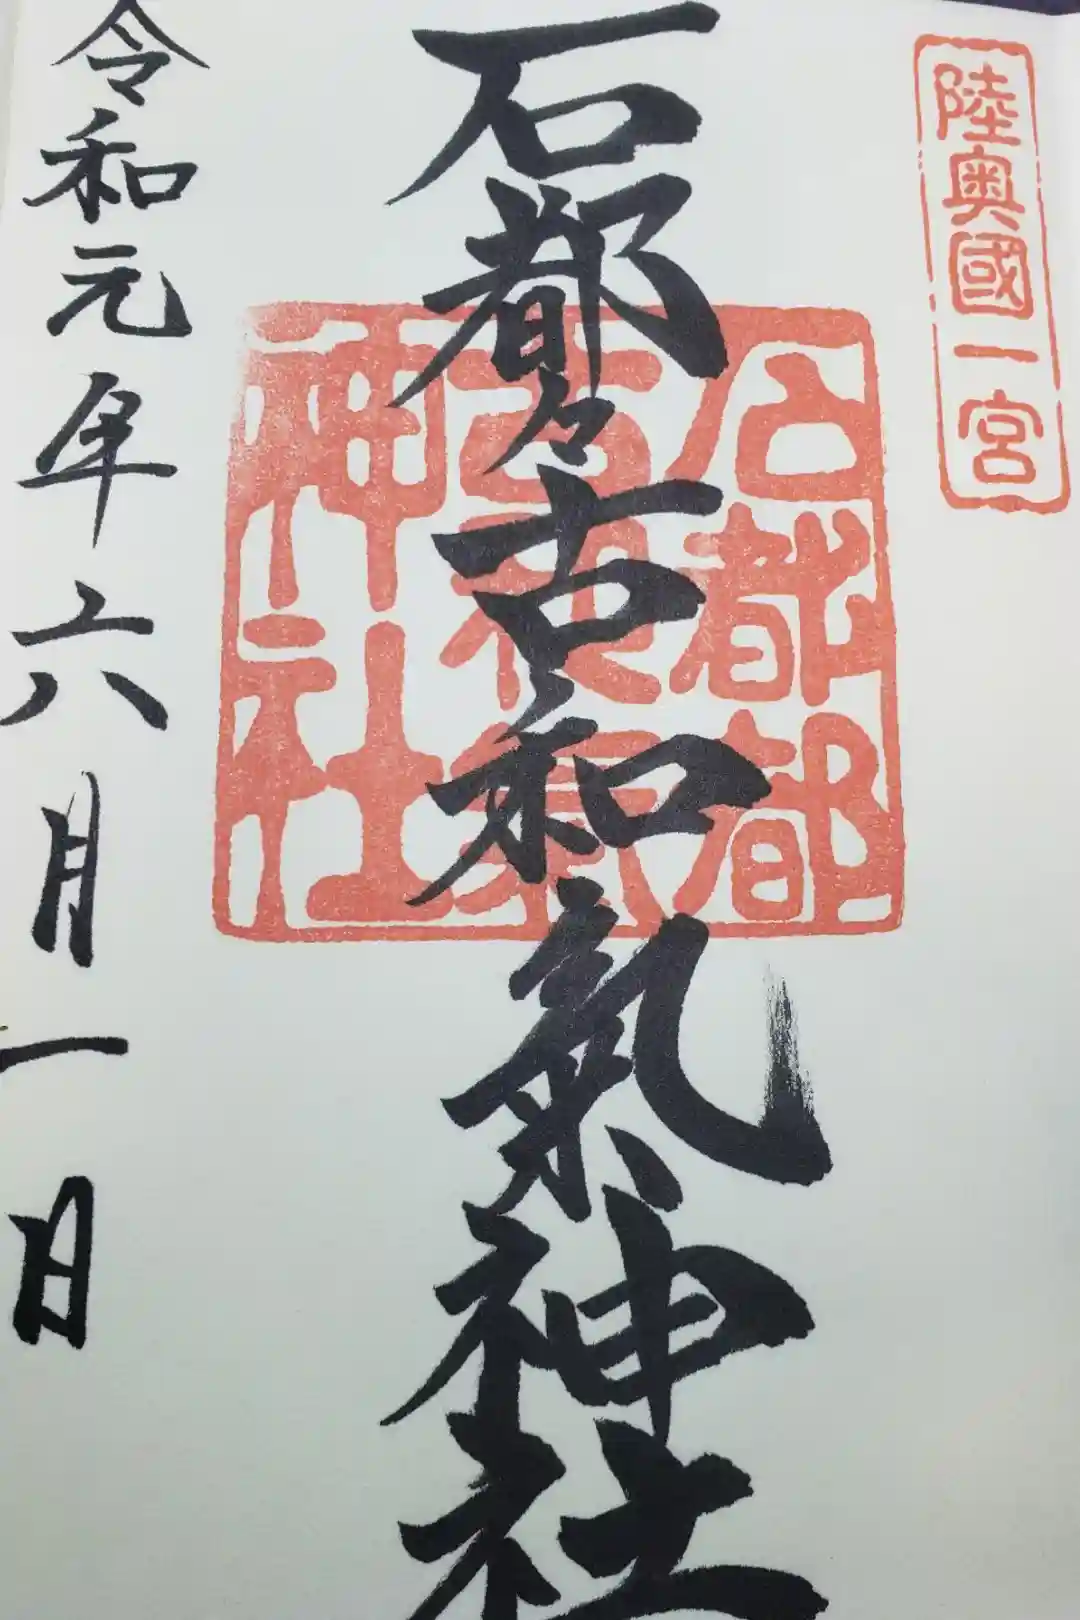 陸奥國一宮
石都々古和氣神社
石都都
古和氣
神社
令和元年六月一日